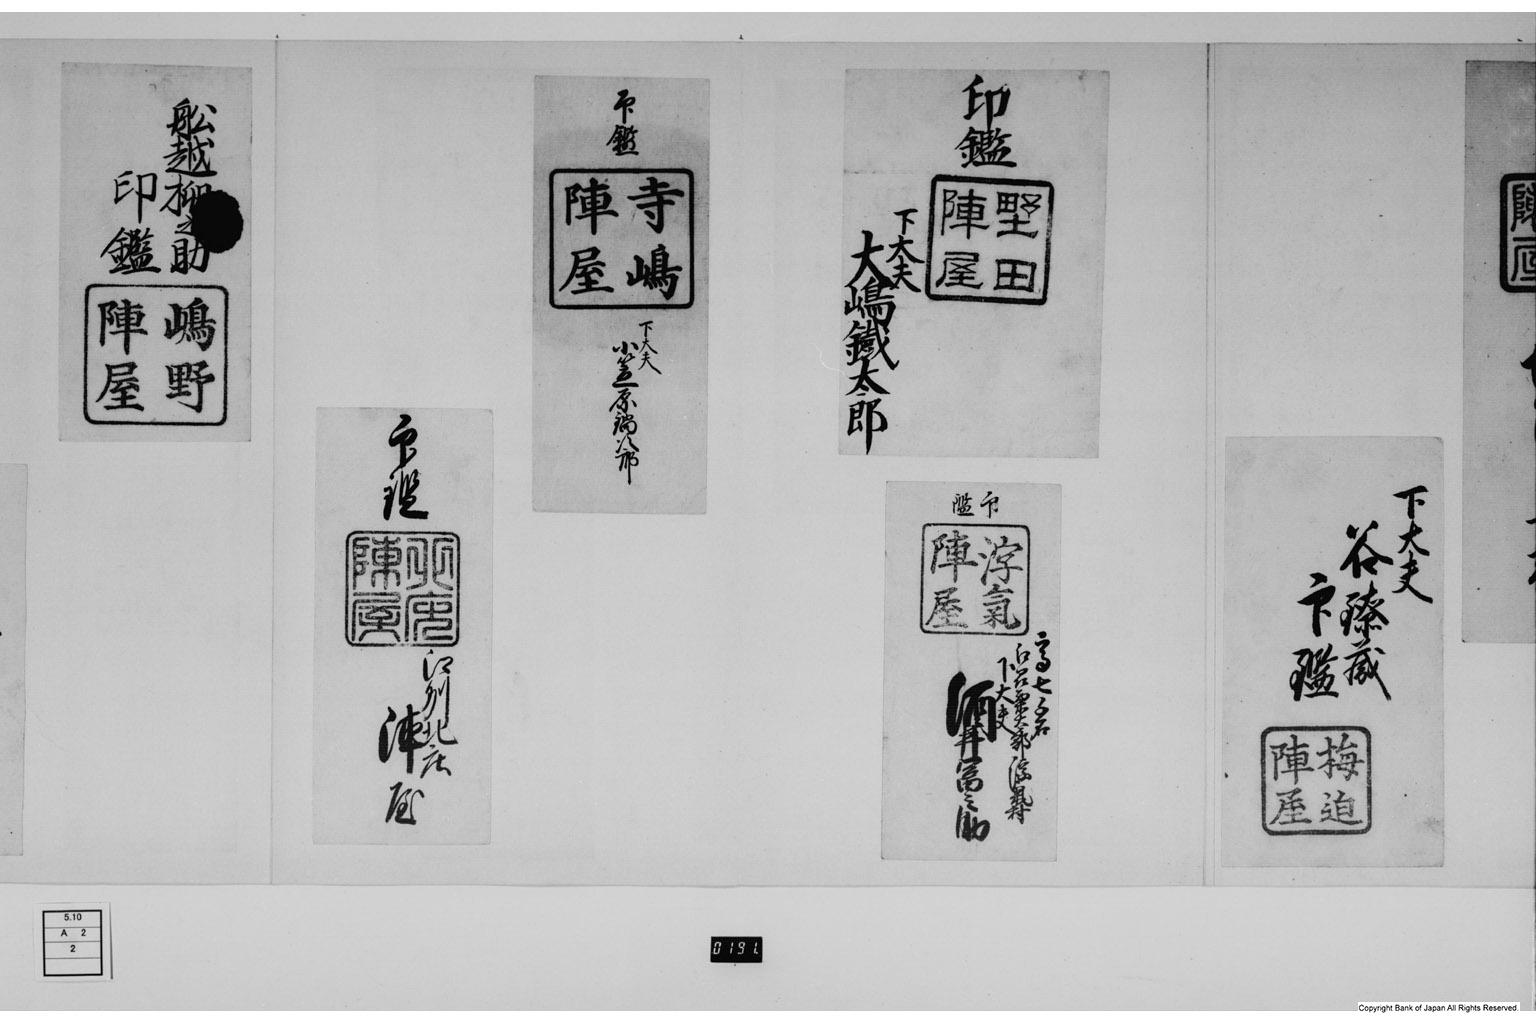 下大夫
谷臻蔵
印鑑
梅迫
陣屋
印鑑
野田
陣屋
下大夫
大嶋鐵太郎
印
鑑
浮氣
陣屋
高七千石
下大夫
酒井富之助
印鑑
寺嶋
陣屋
下大夫
小笠原端次郎
印鑑
陣屋
江州北庄
陣屋
船越柳之助
印鑑
嶋野
陣屋
5.10
A 2
2
0191
Copyright Bank of Japan All Rights Reserved.